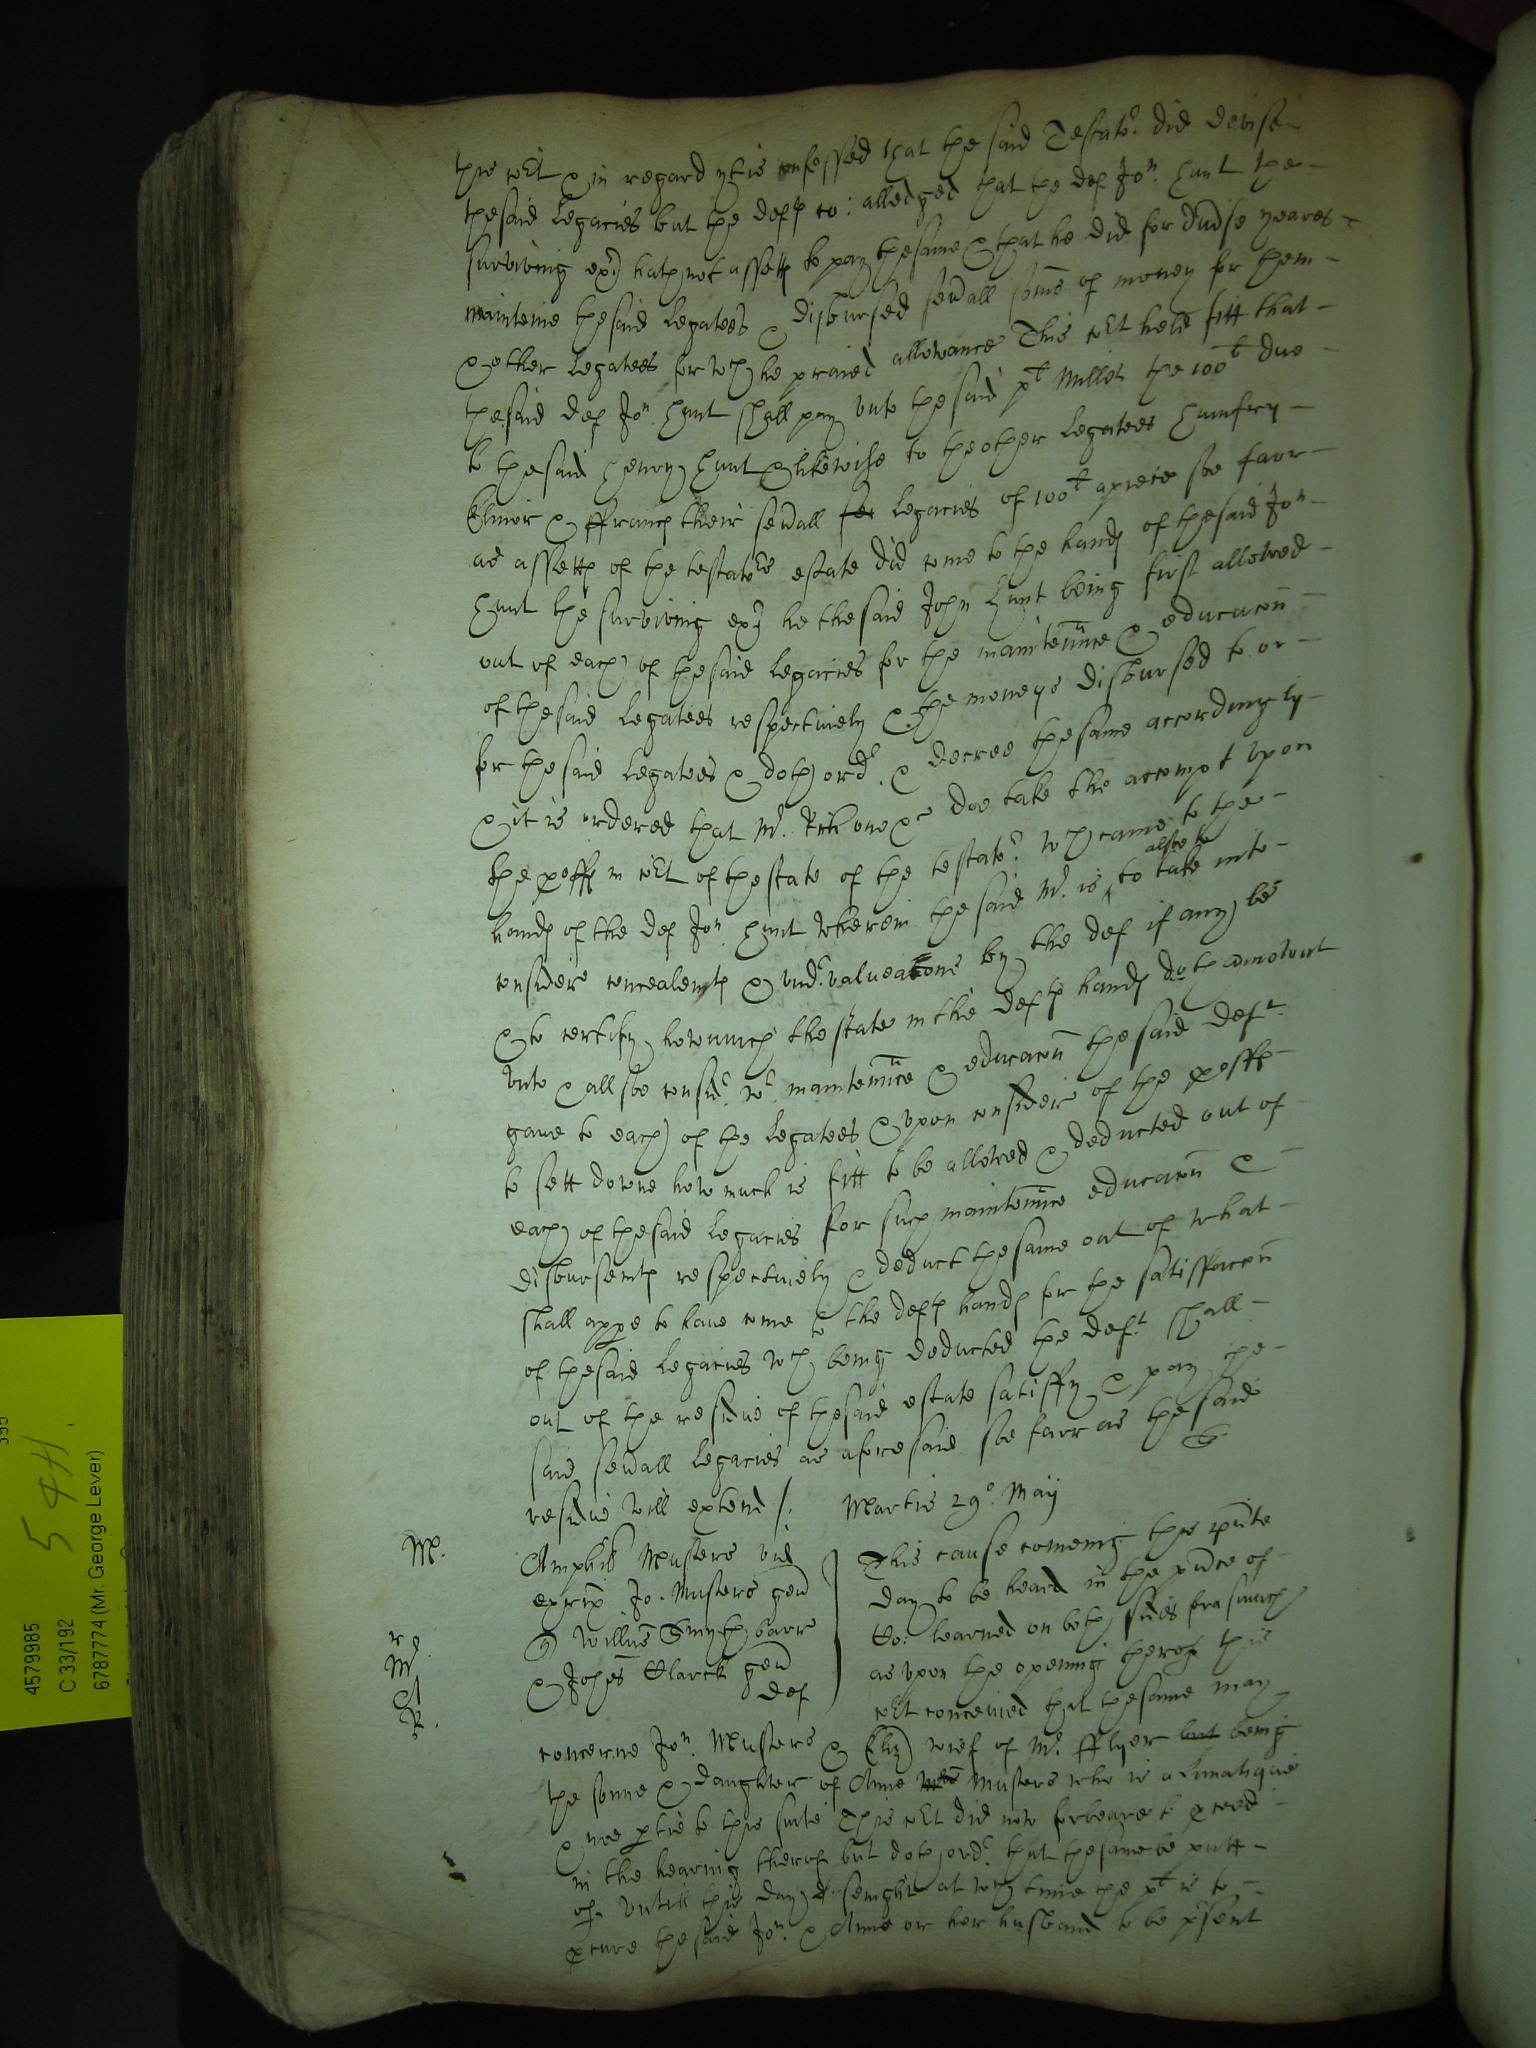 this cot & in regard yt is confessed that the said Testator. did devise
the said Legacies but the deftes co: alledged that the def Jon. Hunt the
surviving exr hath not assetts to pay the same & that he did for divse yeares
mainteine the said Legatees & disbursed sevall somes of money for them
& other Legatees for wch he praied allowance This cot held fitt that
the said def Jon. Hunt shall pay unto the said pt Milles the 100l due
to the said Henry Hunt & likewise to the other Legatees Humfrey
Elinor & ffrancs their sevall Legacies of 100l apiece soe farr
as assetts of the testators estate did come to the hands of the said Jon
Hunt the surviving exr he the said John Hunt being first allowed
out of each of the said Legacies for the maintennce & educacon
of the said Legatees respectively & the moneys disbursed to or
for the said Legatees & doth order. & decree the same accordingly
& it is ordered that Mr. Rich one &c doe take the accompt upon
the pceffs in cot of thestate of the testator. wch came to the
hands of the def Jon Hunt wherein the said Mr. is to alsoe to take into
consider concealemts & under valueacons by the def if any be
& to certify howmuch thestate in the defts hands doth amount
unto & allsoe consider. wt. maintennce & educacon the said deft.
gave to each of the Legatees & upon consider of the pceffs
to sett downe how much is fitt to be allowed & deducted out of
each of the said Legacies for such maintennce educacon &
disbursemts respectively & deduct the same out of what
shall appe to have come to the defts hands for the satisfaccon
of the said Legacies wch being deducted the deft shall
out of the residue of the said estate satisfy & pay the
said sevall Legacies as aforesaid soe farr as the said
residue will extend /.
Martis 29o. Maij
M.
Amphilis Musters vid
exrix Jo. Musters gen
Willus Smyth barr
& Johes Clarck gen
def
r
Mr.
cl
R.
This cause comeing this psnte
day to be heard in the psnce of
Co: learned on both sides forasmuch
as upon the opening therof this
cot conceived that the same may
concerne Jon. Musters & Eliz wief of Mr. fflyer but being
the sonne & daughter of Anne Musters who is a Lunatique
& noe ptie to this suite This cot did now forbeare to pceed
in the hearing therof but doth order. that the same be putt
of. untill this day senight at wch time the pt is to
pcure the said Jon. & Anne or her husband to be psent
4579985
C 33/192
6787774 (Mr. George Lever)
5 4H.